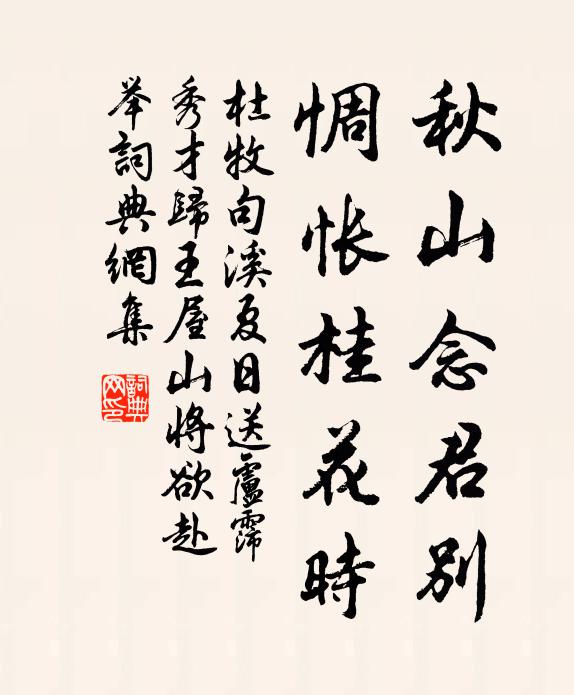 秋山念君別
惆怅桂花時
杜牧句溪夏日送盧霈
秀才歸王屋山將欲赴
举詞典網集